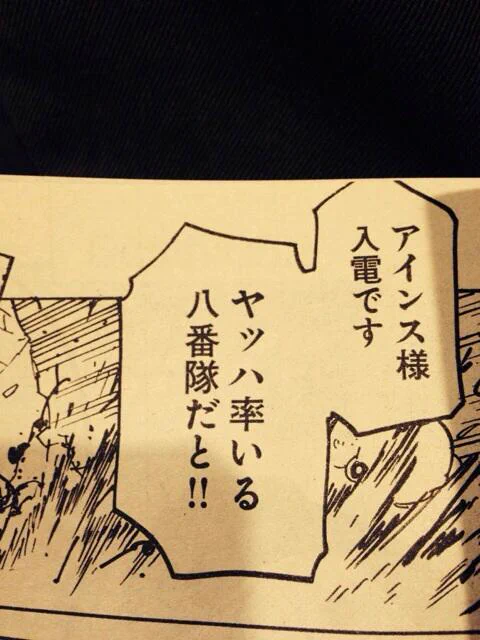 アインス様
入電です
ヤッハ率いる
八番隊だと!!